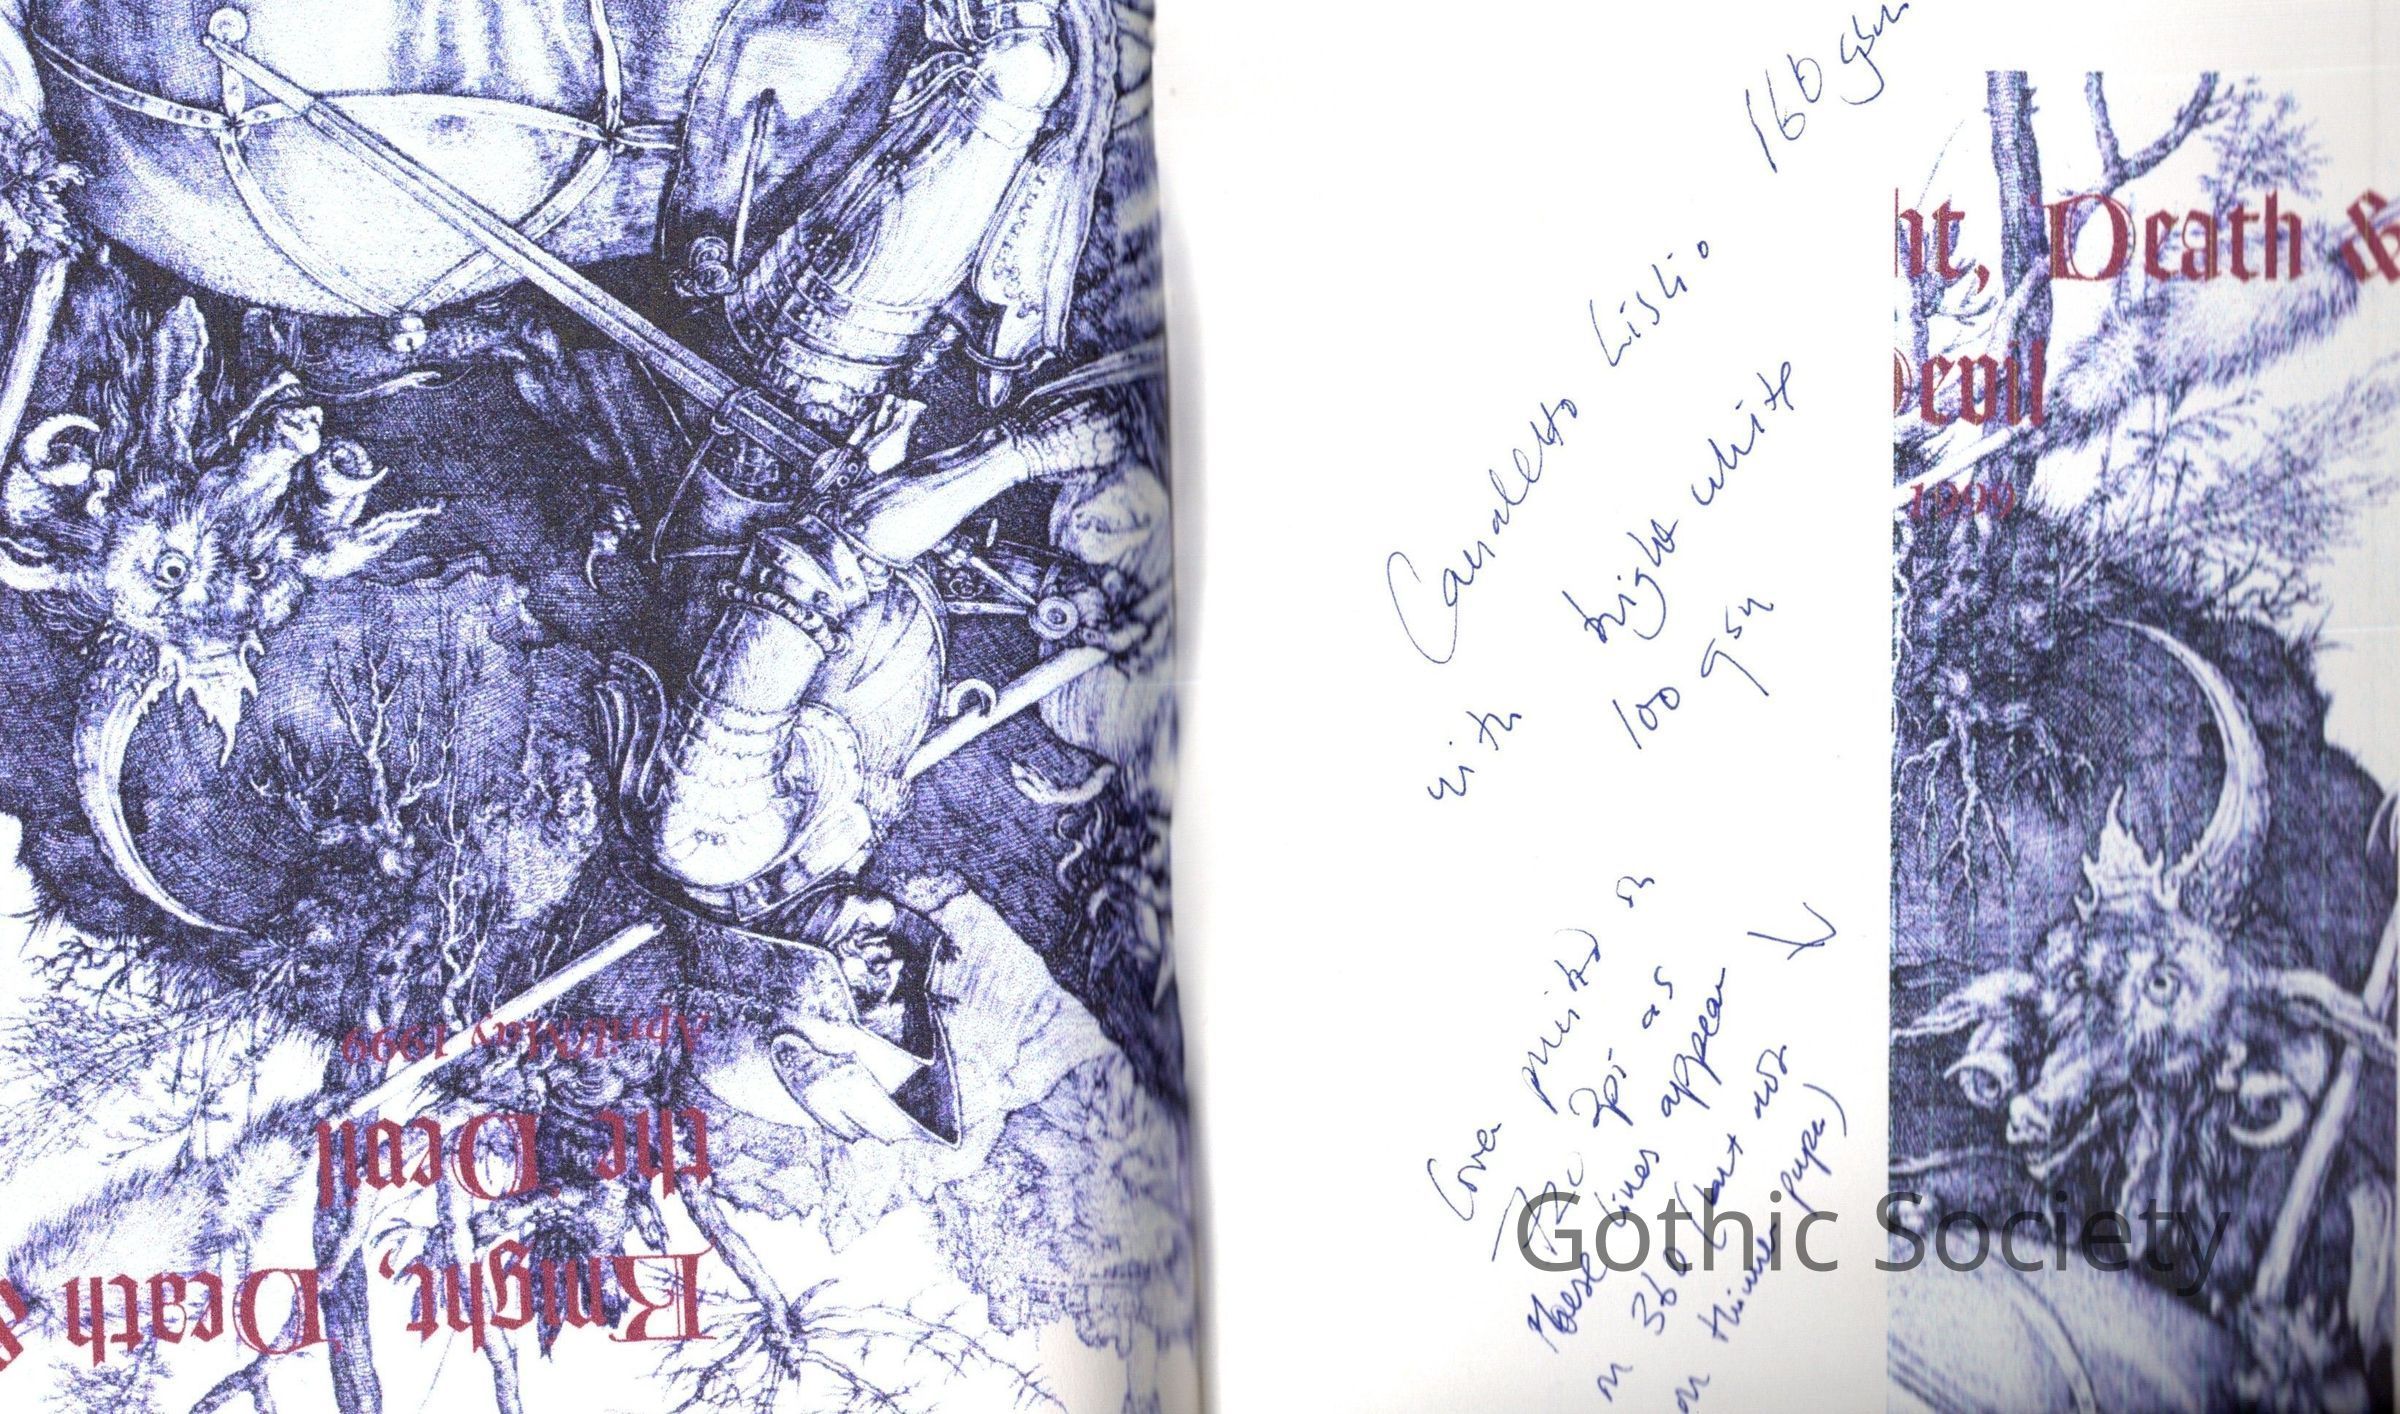 Knight, Death &
the Devil
April/May 1999
160 gsm
Canaletto Liscio
with bright white
100 gsm
Cover printed on
720 dpi as
these lines appear
on 360 (but not
on thinner paper)
ht, Death &
Devil
1999
Gothic Society